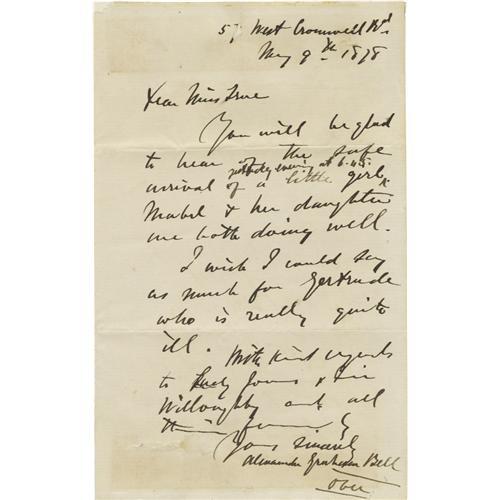 57 West Cromwell Rd.
May 9th 1878
Dear Miss True
You will be glad
to hear of the safe
yesterday evening at 6.45.
arrival of a little girl
Mabel & her daughter
are both doing well.
I wish I could say
as much for Gertrude
who is really quite
ill. With kind regards
to Lady Jones & Sir
Willoughby and all
Yours sincerely
Alexander Graham Bell
over